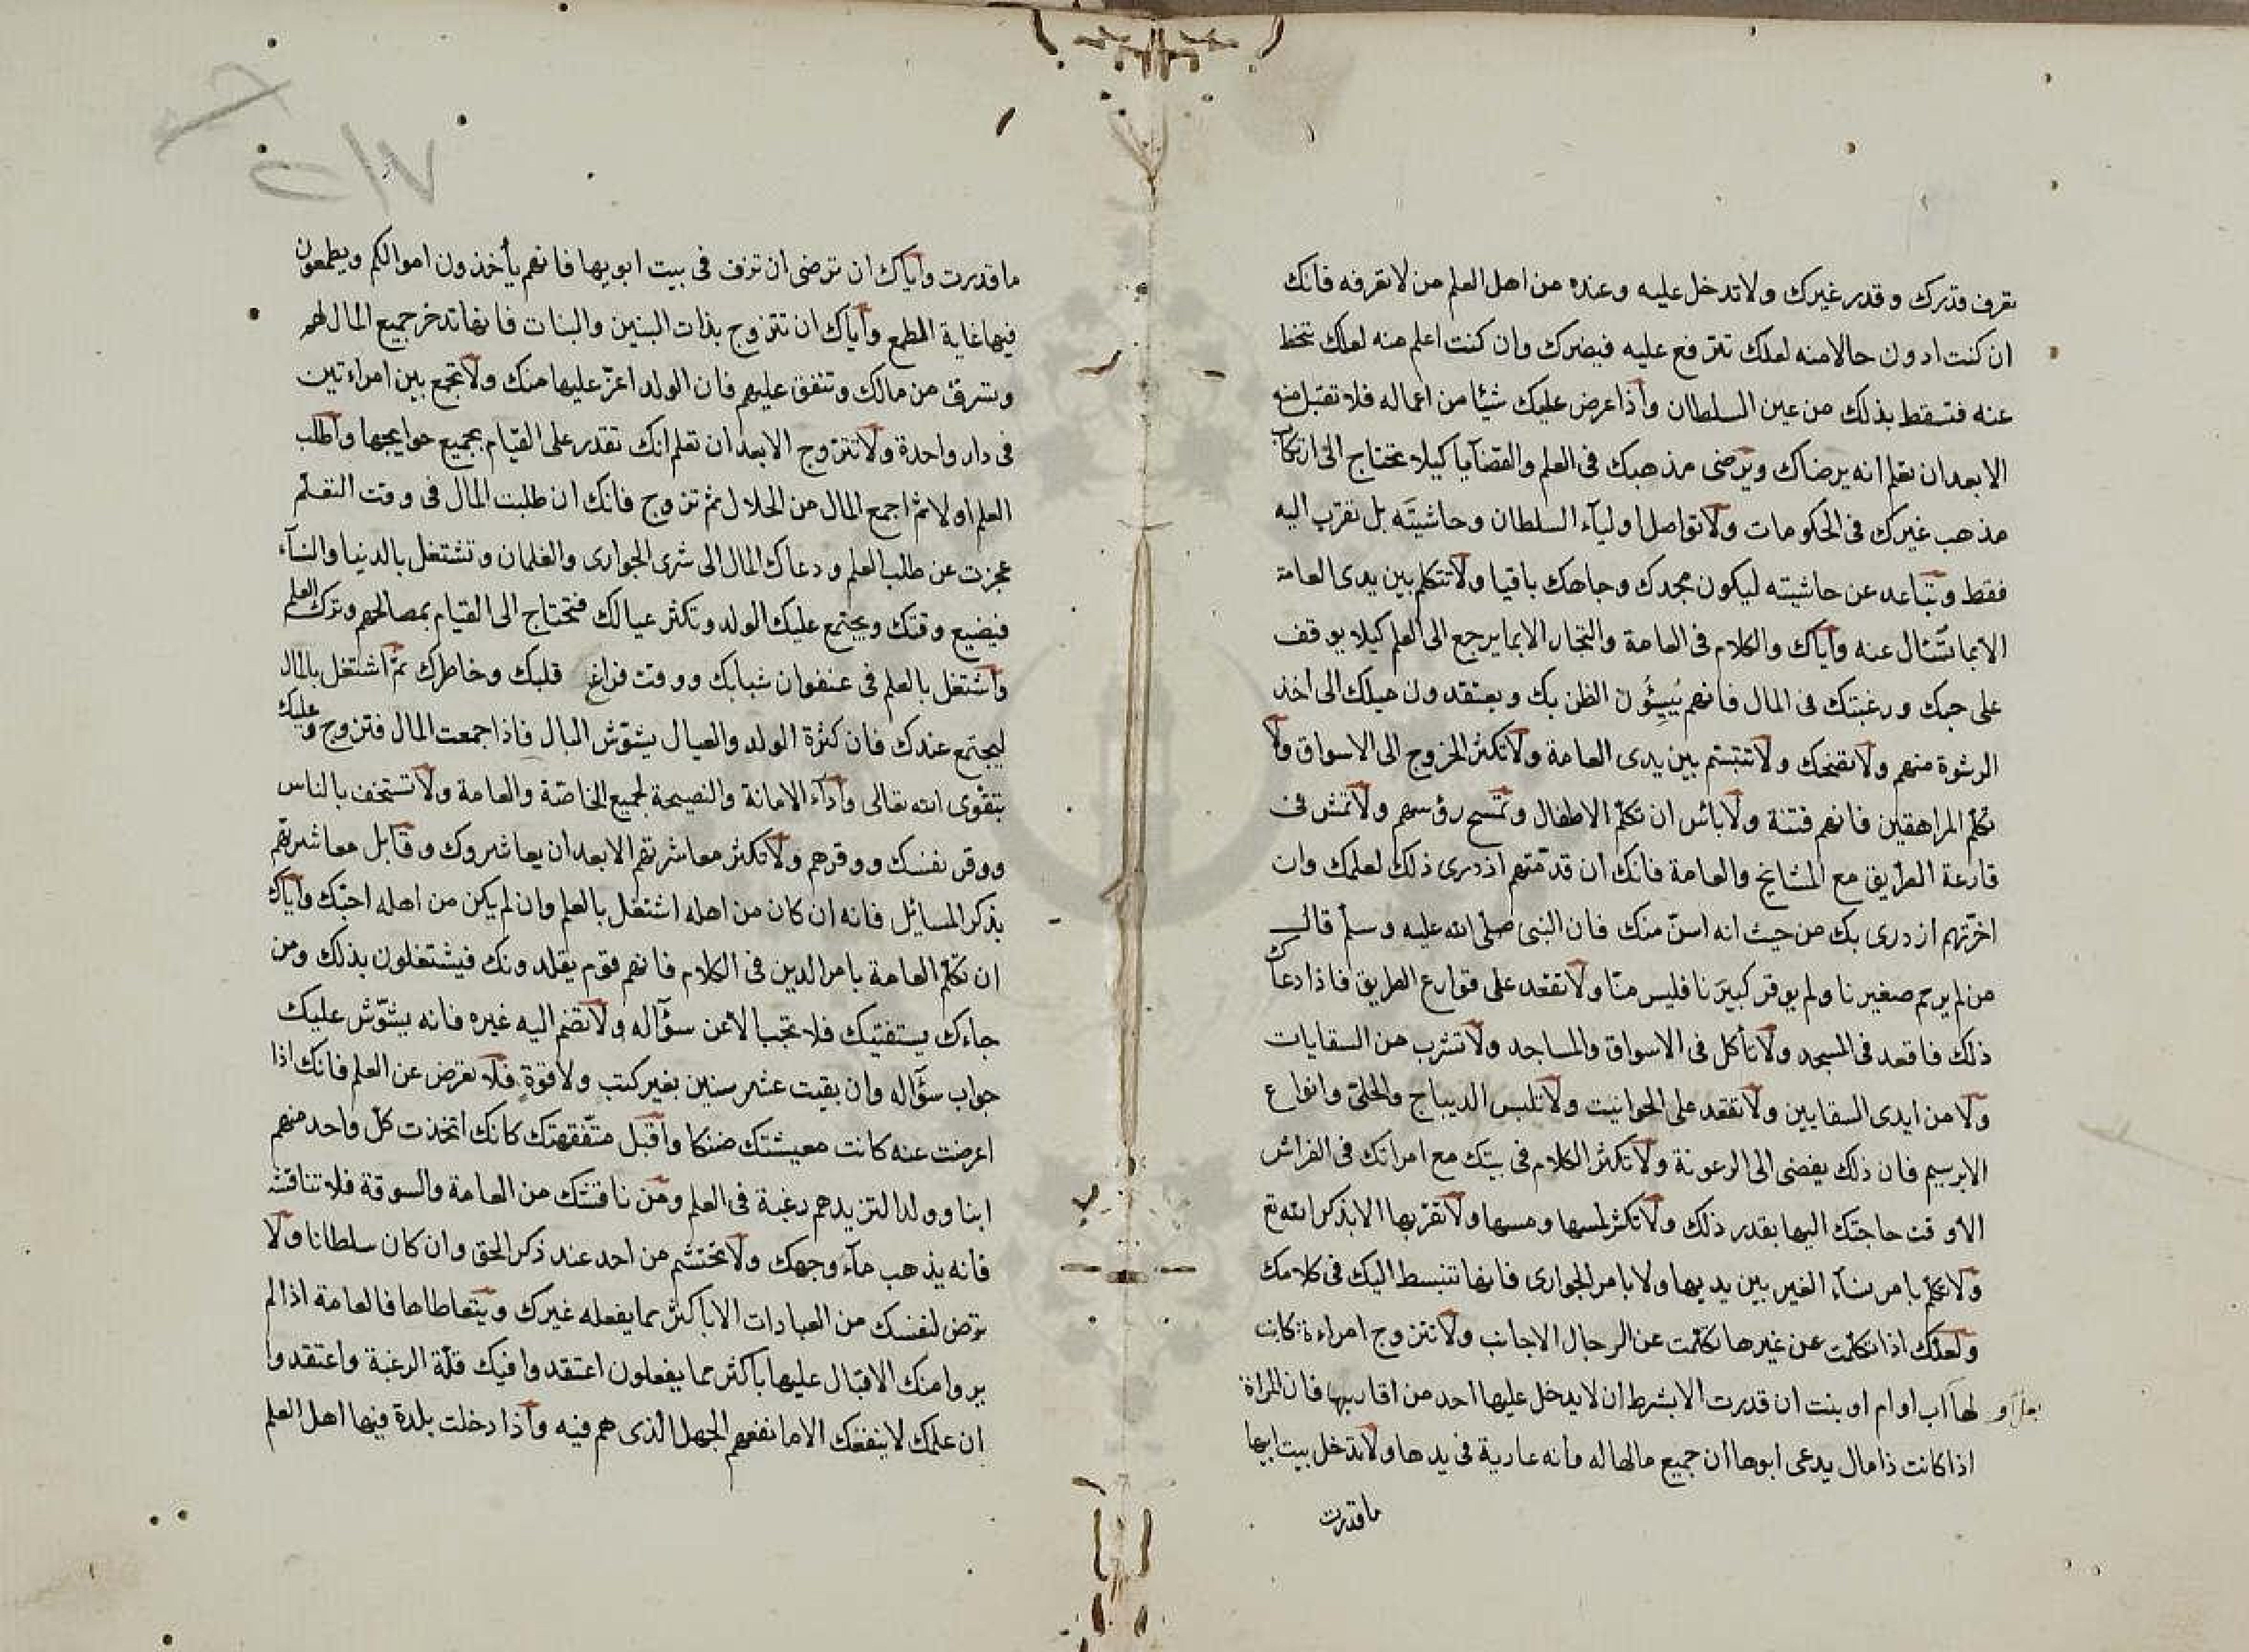 تعرف قدرك وقدر غيرك ولا تدخل عليه وعنده من اهل العلم من لا تعرفه فانك
ان كنت ادون حالا منه لعلك تترفع عليه فيضرك وان كنت اعلم منه لعلك تنحط
عنه فتسقط بذلك من عين السلطان واذا عرض عليك شيئا من اعماله فلا تقبل منه
الا بعد ان تعلم انه يرضاك ويرضى مذهبك فى العلم والقضايا كيلا تحتاج الى ارتكاب
مذهب غيرك فى الحكومات ولا تواصل اولياء السلطان وحاشيته بل تقرب اليه
فقط وتباعد عن حاشيته ليكون مجدك وجاهك باقيا ولا تتكلم بين يدى العامة
الا بما تسئال عنه واياك والكلام فى العامة والتجار الا بما يرجع الى العلم كيلا يوقف
على حبك ورغبتك فى المال فانهم يسيؤن الظن بك ويعتقدون ميلك الى اخذ
الرشوة منهم ولا تضحك ولا تتبسم بين يدى العامة ولا تكثر الخروج الى الاسواق ولا
تكلم المراهقين فانهم فتنة ولا بائس ان تكلم الاطفال وتمسح رؤسهم ولا تمش فى
قارعة الطريق مع المشايخ والعامة فانك ان قدمتهم ازدرى ذلك لعلمك وان
اخرتهم ازدرى بك من حيث انه اسن منك فان النبى صلى الله عليه وسلم قال
من لم يرحم صغيرنا ولم يوقر كبيرنا فليس منا ولا تقعد على قوارع الطريق فاذا دعاك
ذلك فاقعد فى المسجد ولا تأكل فى الاسواق والمساجد ولا تشرب من السقايات
ولا من ايدى السقايين ولا تقعد على الحوانيت ولا تلبس الديباج والحلى وانواع
الابرسيم فان ذلك يفضى الى الرعونة ولا تكثر الكلام فى بيتك مع امراتك فى الفراش
الا وقت حاجتك اليها بقدر ذلك ولا تكثر لمسها ومسها ولا تقربها الا بذكر الله تع
ولا تكلم بامر نساء الغير بين يديها ولا بامر الجوارى فانها تنبسط اليك فى كلامك
ولعلك اذا تكلمت عن غيرها تكلمت عن الرجال الاجانب ولا تتزوج امراءة كان
لها اب او ام او بنت ان قدرت الا بشرط ان لا يدخل عليها احد من اقاربها فان المراة
بعل او
اذا كانت ذا مال يدعى ابوها ان جميع مالها له وانه عارية فى يدها ولا تدخل بيت ابيها
ما قدرت
ما قدرت واياك ان ترضى ان تزف فى بيت ابويها فانهم يأخذون اموالكم ويطمعون
فيها غاية المطمع واياك ان تتزوج بذات البنين والبنات فانها تدخر جميع المال لهم
وتسرق من مالك وتنفق عليهم فان الولد اعز عليها منك ولا تجمع بين امراءتين
فى دار واحدة ولا تتزوج الا بعد ان تعلم انك تقدر على القيام بجميع حوايجها واطلب
العلم اولا ثم اجمع المال من الحلال ثم تزوج فانك ان طلبت المال فى وقت التعلم
عجزت عن طلب العلم ودعاك المال الى شرى الجوارى والغلمان وتشتغل بالدنيا والنساء
فيضيع وقتك ويجتمع عليك الولد وتكثر عيالك فتحتاج الى القيام بمصالحهم وترك العلم
واشتغل بالعلم فى عنفوان شبابك ووقت فراغ قلبك وخاطرك ثم اشتغل بالمال
ليجتمع عندك فان كثرة الولد والعيال يشوش البال فاذا جمعت المال فتزوج وعليك
بتقوى الله تعالى واداء الامانة والنصيحة لجميع الخاصة والعامة ولا تستخف بالناس
ووقر نفسك ووقرهم ولا تكثر معاشرتهم الا بعد ان يعاشروك وقابل معاشرتهم
بذكر المسائل فانه ان كان من اهله اشتغل بالعلم وان لم يكن من اهله احبك واياك
ان تكلم العامة بامر الدين فى الكلام فانهم قوم يقلدونك فيشتغلون بذلك ومن
جاءك يستفتيك فلا تجب الا عن سؤاله ولا تضم اليه غيره فانه يشوش عليك
جواب سؤاله وان بقيت عشر سنين بغير كتب ولا قوة فلا تعرض عن العلم فانك اذا
اعرضت عنه كانت معيشتك ضنكا واقبل متفقهتك كانك اتخذت كل واحد منهم
ابنا وولدا لتزيدهم رغبة فى العلم ومن ناقشك من العامة والسوقة فلا تناقشه
فانه يذهب ماء وجهك ولا تحتشم من احد عند ذكر الحق وان كان سلطانا ولا
ترض لنفسك من العبادات الا باكثر مما يفعله غيرك ويتعاطاها فالعامة اذا لم
يروا منك الاقبال عليها باكثر مما يفعلون اعتقدوا فيك قلة الرغبة واعتقدوا
ان علمك لا ينفعك الا ما نفعهم الجهل الذى هم فيه واذا دخلت بلدة فيها اهل العلم